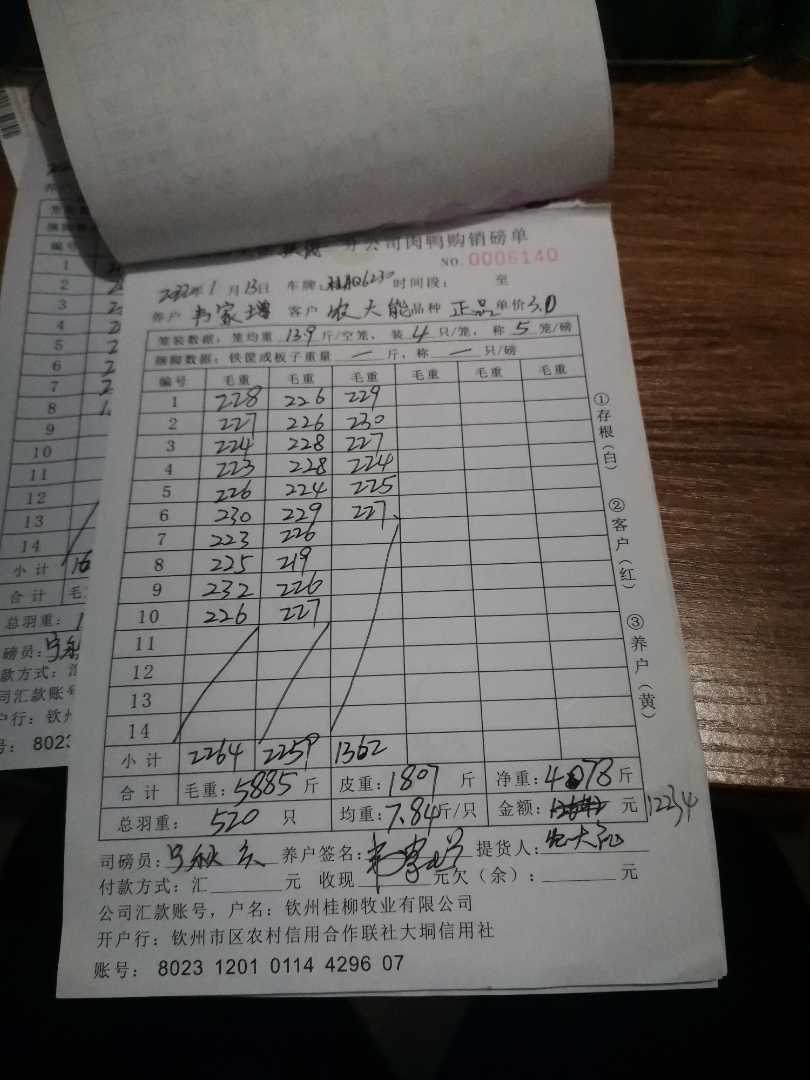 分公司肉鸭购销磅单
NO. 0006140
2022年1月13日 车牌:桂AQ6230 时间段: 至
养户 韦家增 客户 农大能 品种 正品 单价 3.0
笼装数据,笼均重 13.9 斤/空笼, 装 4 只/笼, 称 5 笼/磅
捆脚数据:铁筐或板子重量 一 斤,称 一 只/磅
编号 毛重 毛重 毛重 毛重 毛重 毛重
1 228 226 229
2 227 226 230
3 224 228 227
4 223 228 224
5 226 224 225
6 230 229 227
7 223 226
8 225 219
9 232 226
10 226 227
11
12
13
14
小计 2264 2259 1362
合计 毛重:5885 斤 皮重:1807 斤 净重:4078 斤
总羽重: 520 只 均重:7.84 斤/只 金额: 元 12234
司磅员: 养户签名: 提货人:
付款方式:汇 元 收现 元欠(余): 元
公司汇款账号,户名:钦州桂柳牧业有限公司
开户行:钦州市区农村信用合作联社大垌信用社
账号: 8023 1201 0114 4296 07
①存根(白)
②客户(红)
③养户(黄)
编号
1
2
3
4
5
6
7
8
9
10
11
12
13
14
小计 16
合计 毛
总羽重:
磅员:
款方式:汇
司汇款账号
户行:钦州
号: 8023